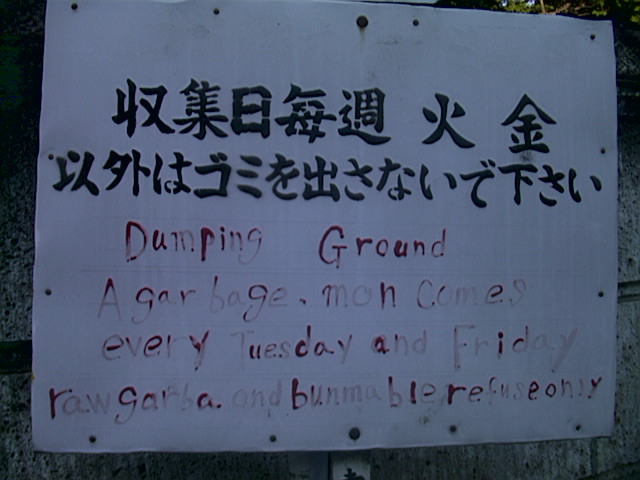 収集日毎週 火 金
以外はゴミを出さないで下さい
Dumping Ground
A garbage. mon comes
every Tuesday and Friday
raw garba. and bunmable refuse only